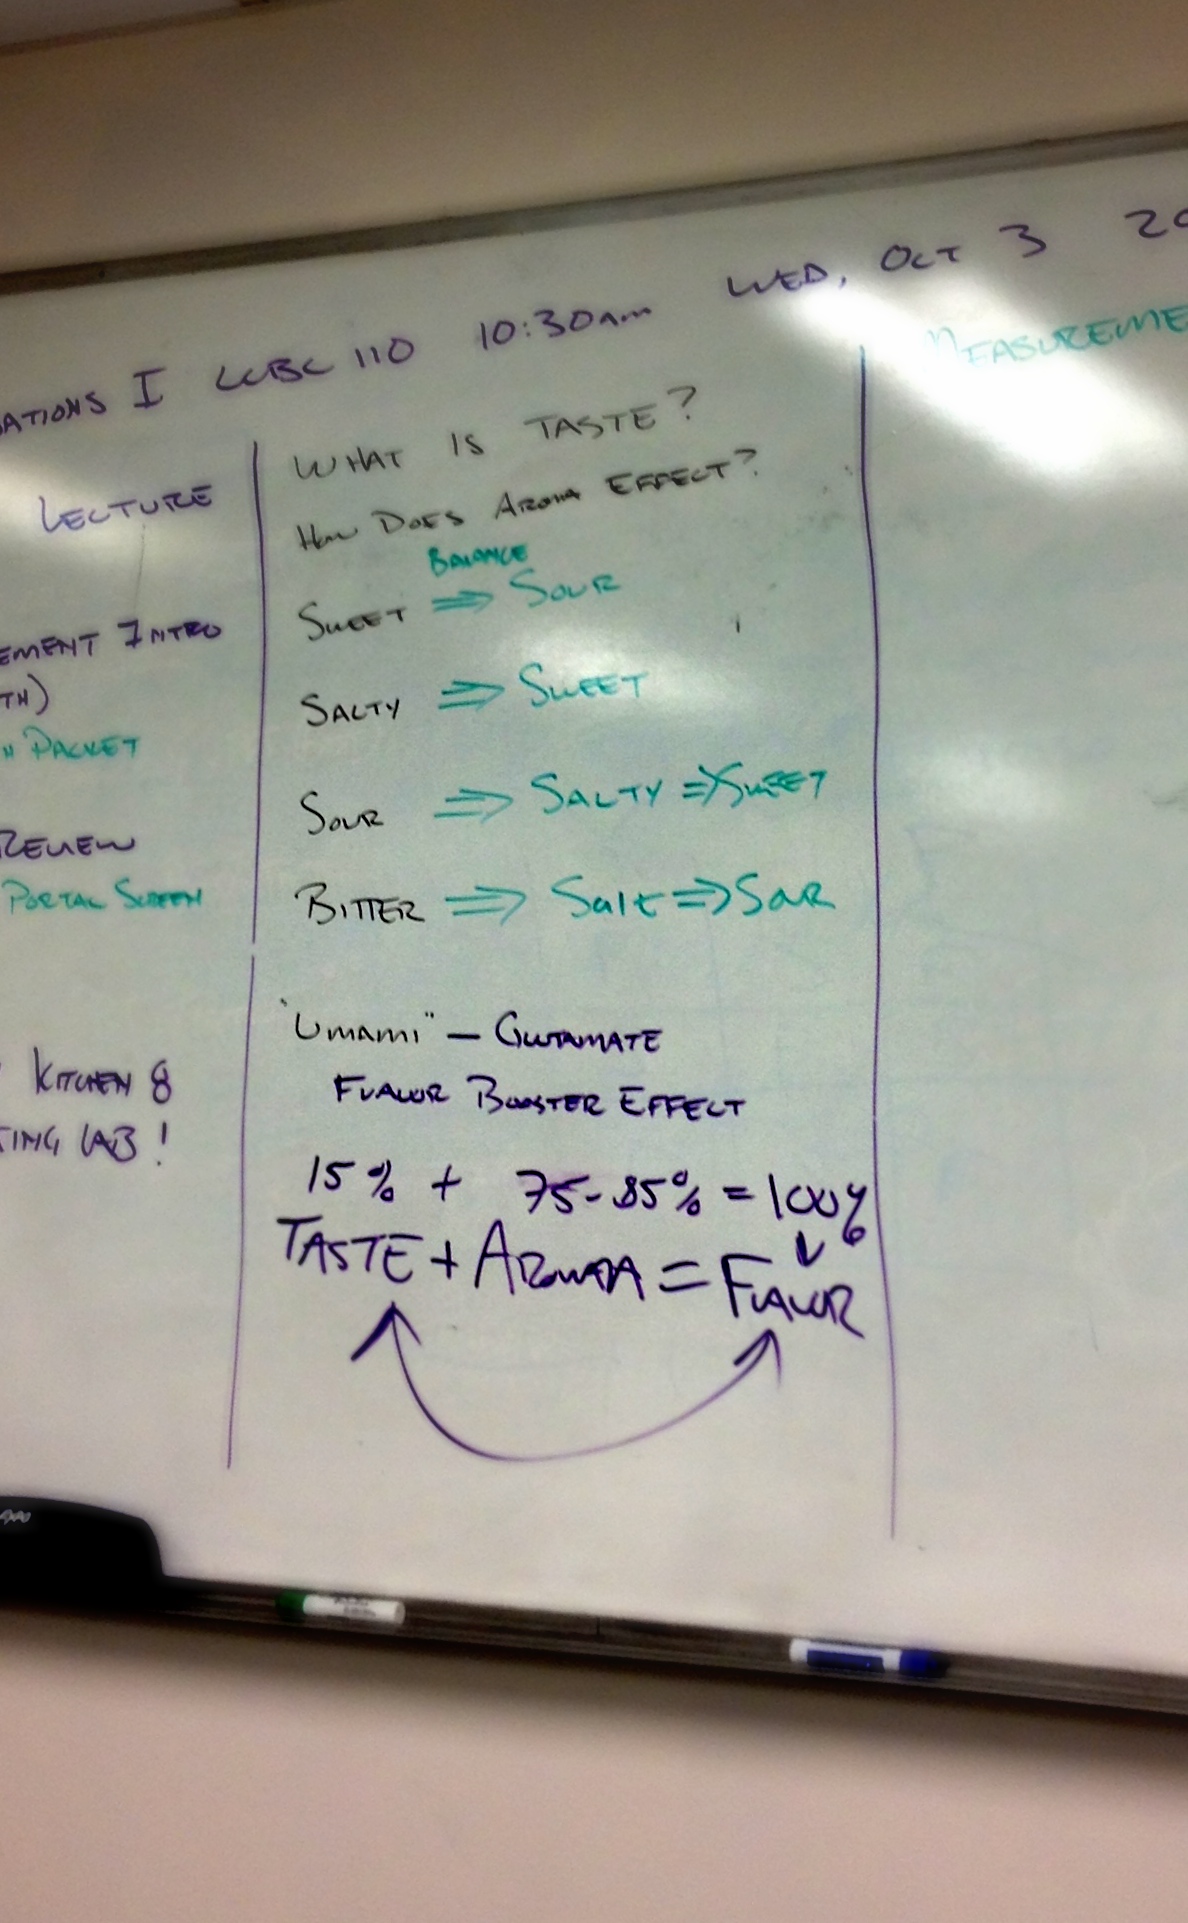 ATIONS I LCBC 110 10:30am WED, OCT 3 20
LECTURE
EMENT INTRO
TH)
N PACKET
REVIEW
PORTAL SCREEN
KITCHEN 8
TING LAB!
WHAT IS TASTE?
HOW DOES AROMA EFFECT?
BALANCE
SWEET ⇒ SOUR
SALTY ⇒ SWEET
SOUR ⇒ SALTY ⇒ SWEET
BITTER ⇒ Salt ⇒ SOUR
"Umami" — GLUTAMATE
FLAVOR BOOSTER EFFECT
15% + 75-85% = 100%
TASTE + AROMA = FLAVOR
MEASUREME